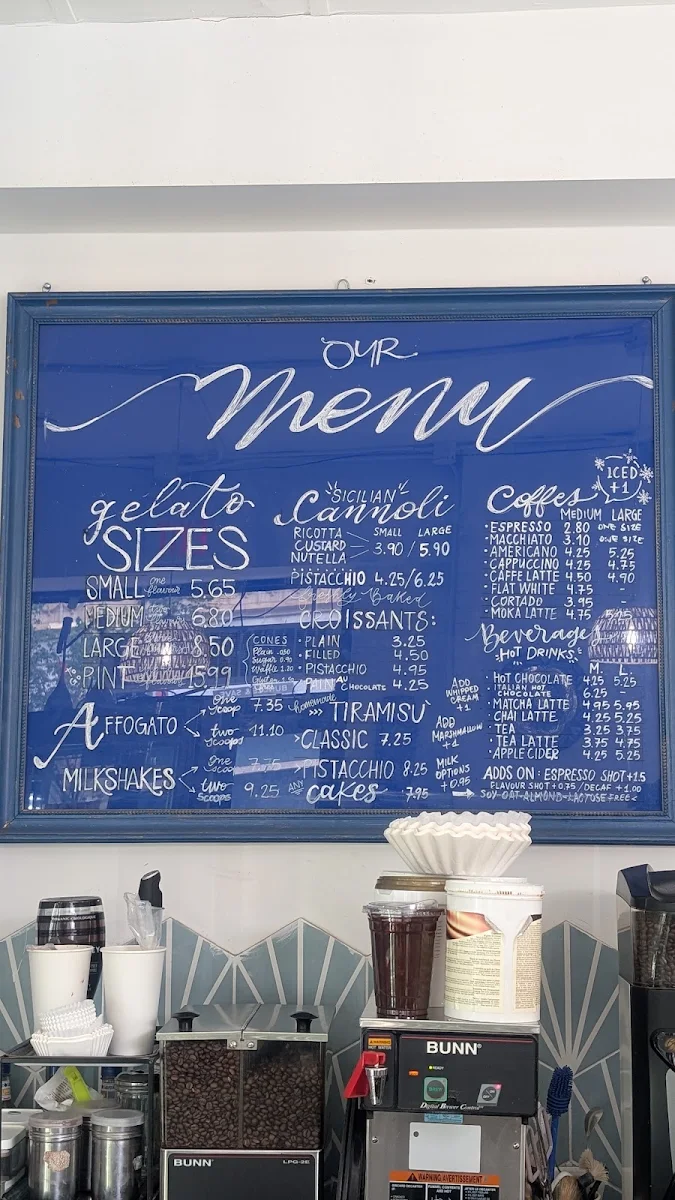 OUR
menu
gelato
SIZES
SMALL one flavour 5.65
MEDIUM 6.80
LARGE 8.50
PINT 15.99
CONES
Plain .50
Sugar 0.90
Waffle 1.20
AFFOGATO
one scoop 7.35
two scoops 11.10
MILKSHAKES
one scoop 7.75
two scoops 9.25
"SICILIAN"
Cannoli
SMALL LARGE
RICOTTA
CUSTARD 3.90 / 5.90
NUTELLA
PISTACCHIO 4.25/6.25
freshly Baked
CROISSANTS:
• PLAIN 3.25
• FILLED 4.50
• PISTACCHIO 4.95
• PAIN AU CHOCOLATE 4.25
homemade
>>> TIRAMISÙ
>CLASSIC 7.25
>PISTACCHIO 8.25
ANY cakes 7.95
ADD WHIPPED CREAM +1
ADD MARSHMALLOW +1
MILK OPTIONS +0.95
ICED +1
Coffes
MEDIUM LARGE
• ESPRESSO 2.80 ONE SIZE
• MACCHIATO 3.10 ONE SIZE
• AMERICANO 4.25 5.25
• CAPPUCCINO 4.25 4.75
• CAFFE LATTE 4.50 4.90
• FLAT WHITE 4.75 -
• CORTADO 3.95 -
• MOKA LATTE 4.75
Beverages
HOT DRINKS
M L
• HOT CHOCOLATE 4.25 5.25
• ITALIAN HOT CHOCOLATE 6.25 -
• MATCHA LATTE 4.95 5.95
• CHAI LATTE 4.25 5.25
• TEA 3.25 3.75
• TEA LATTE 3.75 4.75
• APPLE CIDER 4.25 5.25
ADDS ON: ESPRESSO SHOT +1.5
FLAVOUR SHOT +0.75 / DECAF +1.00
SOY-OAT-ALMOND-LACTOSE FREE
BUNN
READY
Digital Brewer Control
WARNING/AVERTISSEMENT
BUNN
LPG-2E